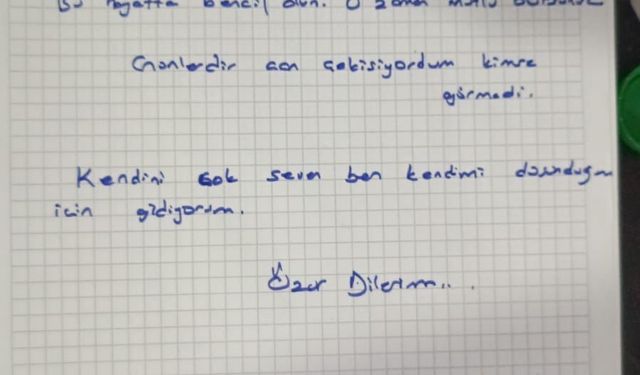 Bu hayatta bencil olun. O zaman mutlu
Günlerdir can çekişiyordum kimse
görmedi.
Kendini çok seven ben kendimi düşündüğüm
için gidiyorum.
Özür Dilerim...